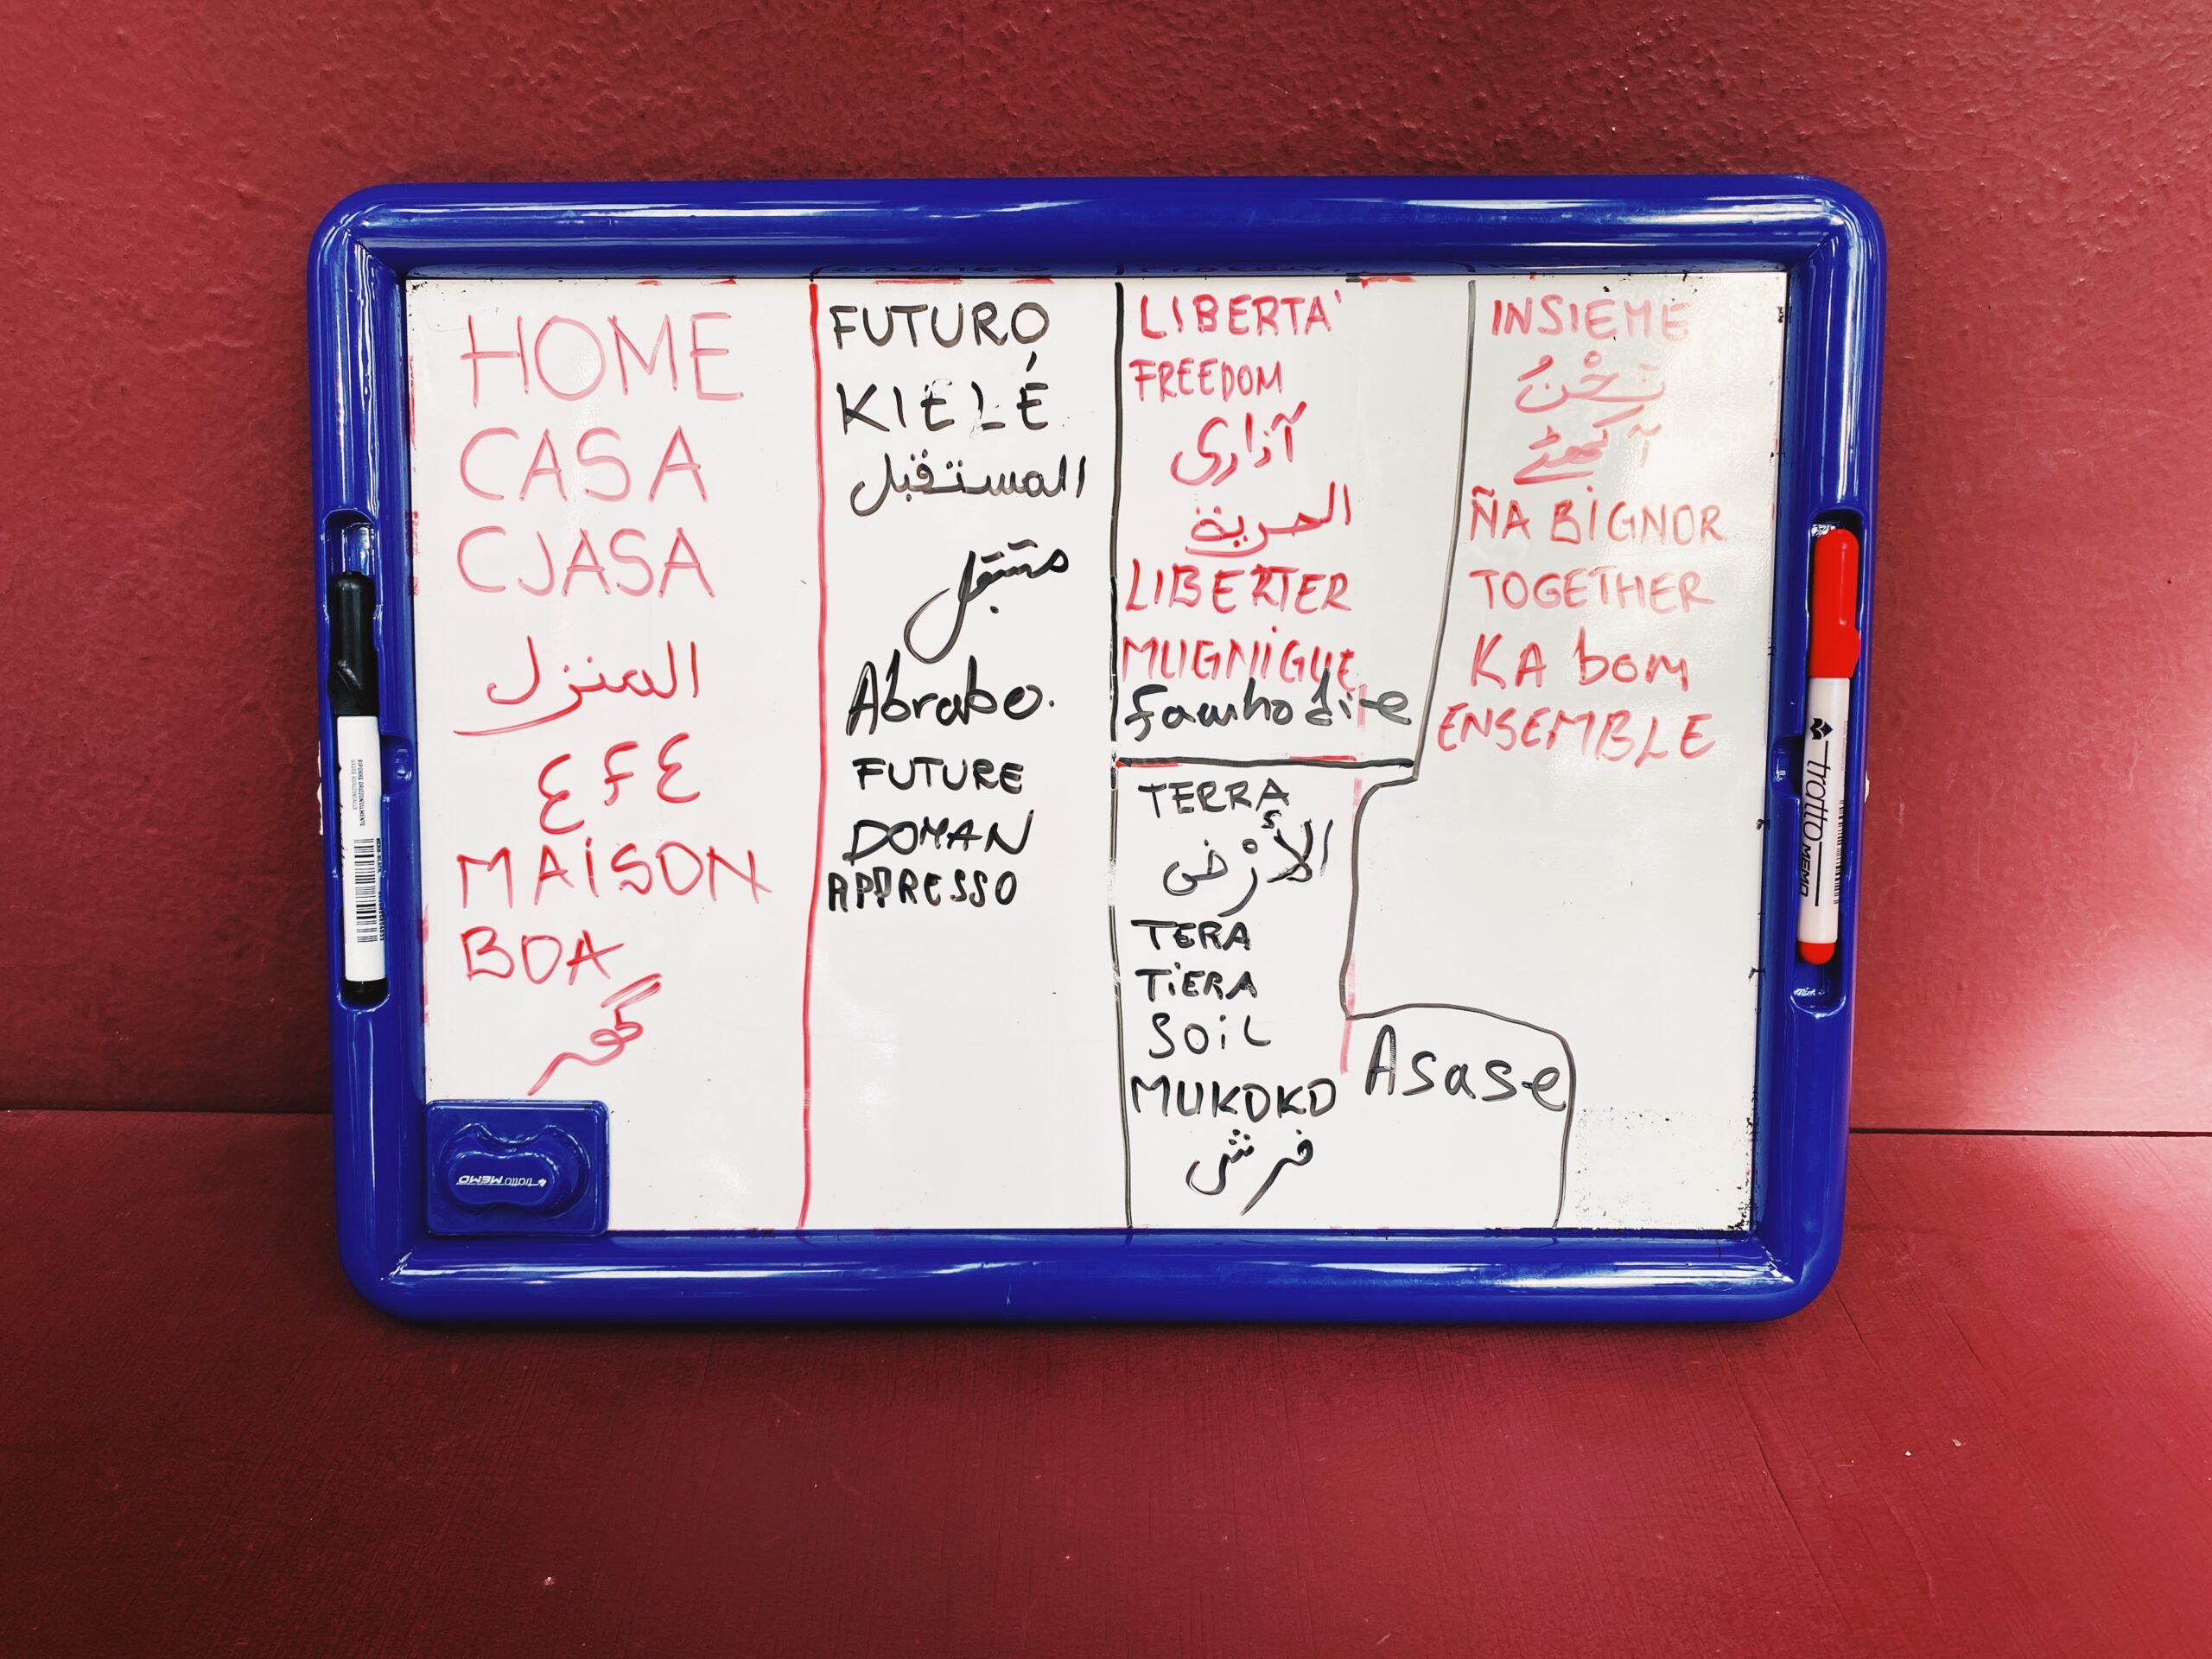 HOME
CASA
CJASA
المنزل
ƐFƐ
MAISON
BOA
گھر
FUTURO
KIELÉ
المستقبل
مستقبل
Abrabo.
FUTURE
DOMAN
APPRESSO
LIBERTA'
FREEDOM
آزادی
الحرية
LIBERTER
MUGNIGUE
fawhodie
TERRA
الأرْض
TERA
TIERA
SOIL
MUKOKO
فرش
Asase
INSIEME
نَحْنُ
ÑA BIGNOR
TOGETHER
KA bom
ENSEMBLE
tratto MEMO
tratto MEMO